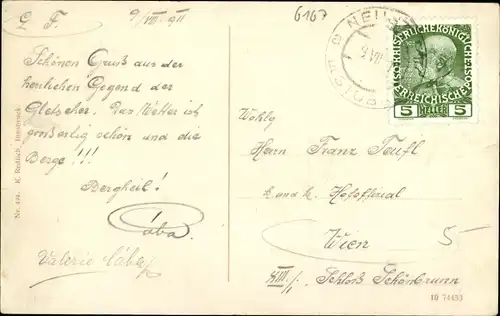 L F.
9/VIII. 911
6167
Schönen Gruß aus der
herrlichen Gegend der
Gletscher. Das Wetter ist
großartig schön und die
Berge!!!
Bergheil!
Valerie
Nr. 424. K. Redlich, Innsbruck
NEUS
KAISERLICHE KÖNIGLICHE
ÖSTERREICHISCHE POST
5 HELLER 5
Wohlg
Herrn Franz Teufl
k. und k. Hofoffizial
Wien
5
XIII./1. Schloß Schönbrunn
10 74453